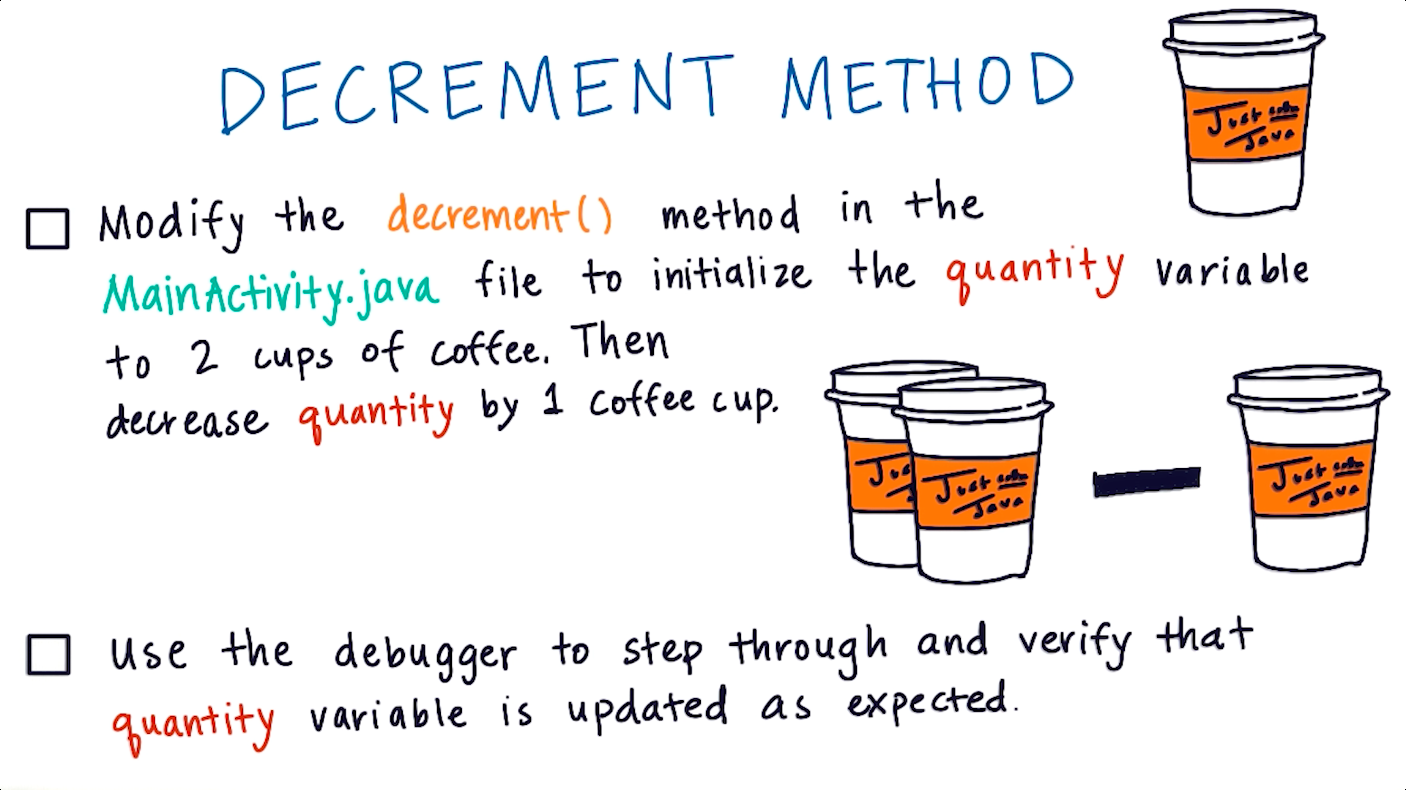 DECREMENT METHOD
Just coffee
Java
Modify the decrement() method in the
MainActivity.java file to initialize the quantity variable
to 2 cups of coffee. Then
decrease quantity by 1 coffee cup.
Jus
Just coffee
Java
Just coffee
Java
Use the debugger to step through and verify that
quantity variable is updated as expected.